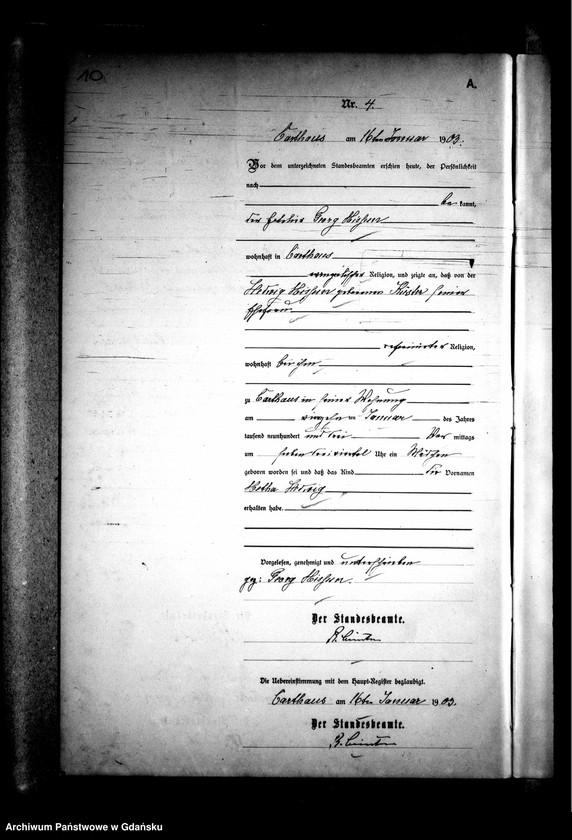 10
A.
Nr. 4.
Carthaus am 16ten Januar 1903.
Vor dem unterzeichneten Standesbeamten erschien heute, der Persönlichkeit
nach
be kannt,
der Georg
wohnhaft in Carthaus
evangelischer Religion, und zeigte an, daß von der
Hedwig geborenen Küster seiner
Ehefrau
reformirter Religion,
wohnhaft bei ihm
zu Carthaus in seiner Wohnung
am Januar des Jahres
tausend neunhundert und drei Vor mittags
um sieben dreiviertel Uhr ein Mädchen
geboren worden sei und daß das Kind die Vornamen
Hedwig
erhalten habe.
Vorgelesen, genehmigt und unterschrieben
gez: Georg
Der Standesbeamte.
Die Uebereinstimmung mit dem Haupt-Register beglaubigt.
Carthaus am 16ten Januar 1903.
Der Standesbeamte.
Archiwum Państwowe w Gdańsku